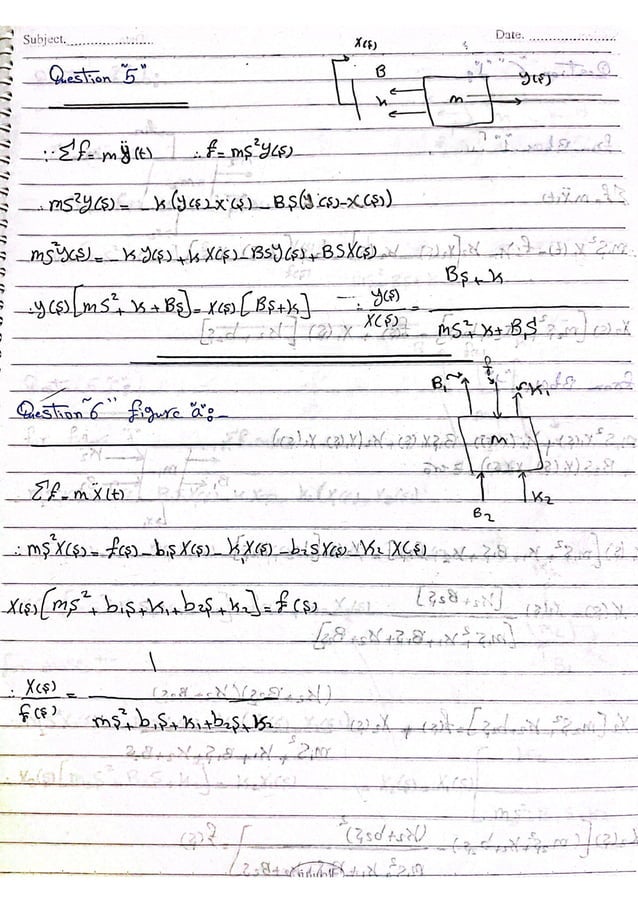 Subject. Date.
Question "5"
X(s)
B
K
m
Y(s)
∵ Σf = mÿ(t) ∴ f = ms²Y(s)
∴ ms²Y(s) = - K(Y(s) - X(s)) - BS(Y(s) - X(s))
ms²Y(s) = - KY(s) + KX(s) - BSY(s) + BSX(s)
∴ Y(s)[ms² + K + BS] = X(s)[BS + K] ∴ Y(s)/X(s) = BS + K / ms² + K + BS
Question "6" figure "a":-
B₁
K₁
m
B₂
K₂
Σf = mẍ(t)
∴ ms²X(s) = f(s) - b₁sX(s) - K₁X(s) - b₂sX(s) - K₂X(s)
X(s)[ms² + b₁s + K₁ + b₂s + K₂] = f(s)
∴ X(s)/f(s) = 1 / ms² + b₁s + K₁ + b₂s + K₂